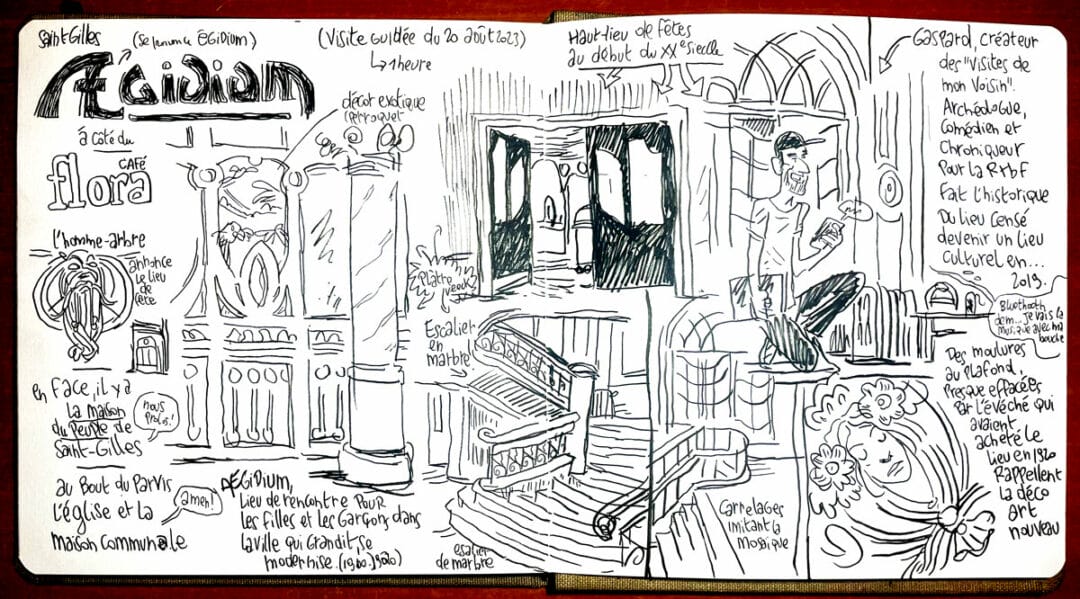 Saint Gilles
(Se prononce ÉGIDIUM)
ÆGIDIUM
(Visite GUIDÉE du 20 août 2023)
↳ 1 heure
à côté du
CAFÉ
flora
l'homme-arbre
annonce
le lieu
de
fête
en face, il y a
la maison
du Peuple de
Saint-Gilles
nous
Prolos!
au Bout du Parvis
l'église et la
maison communale
amen!
décor exotique
perroquet
ÆGIDIUM,
Lieu de rencontre POUR
les filles et les Garçons dans
la ville qui Grandit, se
modernise.
Haut-lieu de fêtes
au début du XXe siècle
Plâtre
Escalier
en
marbre
escalier
de marbre
Carrelages
imitant la
mosaïque
Gaspard, créateur
des "Visites de
mon Voisin".
Archéologue,
Comédien et
Chroniqueur
Pour La Rtbf
Fait l'historique
Du lieu censé
devenir un lieu
culturel en...
2019.
Bluethooth
dem... je vais la
musique avec ma
bouche
Des moulures
au plafond,
Presque effacées
Par l'évêché qui
avaient
acheté le
Lieu en 1920
Rappellent
la déco
art
nouveau